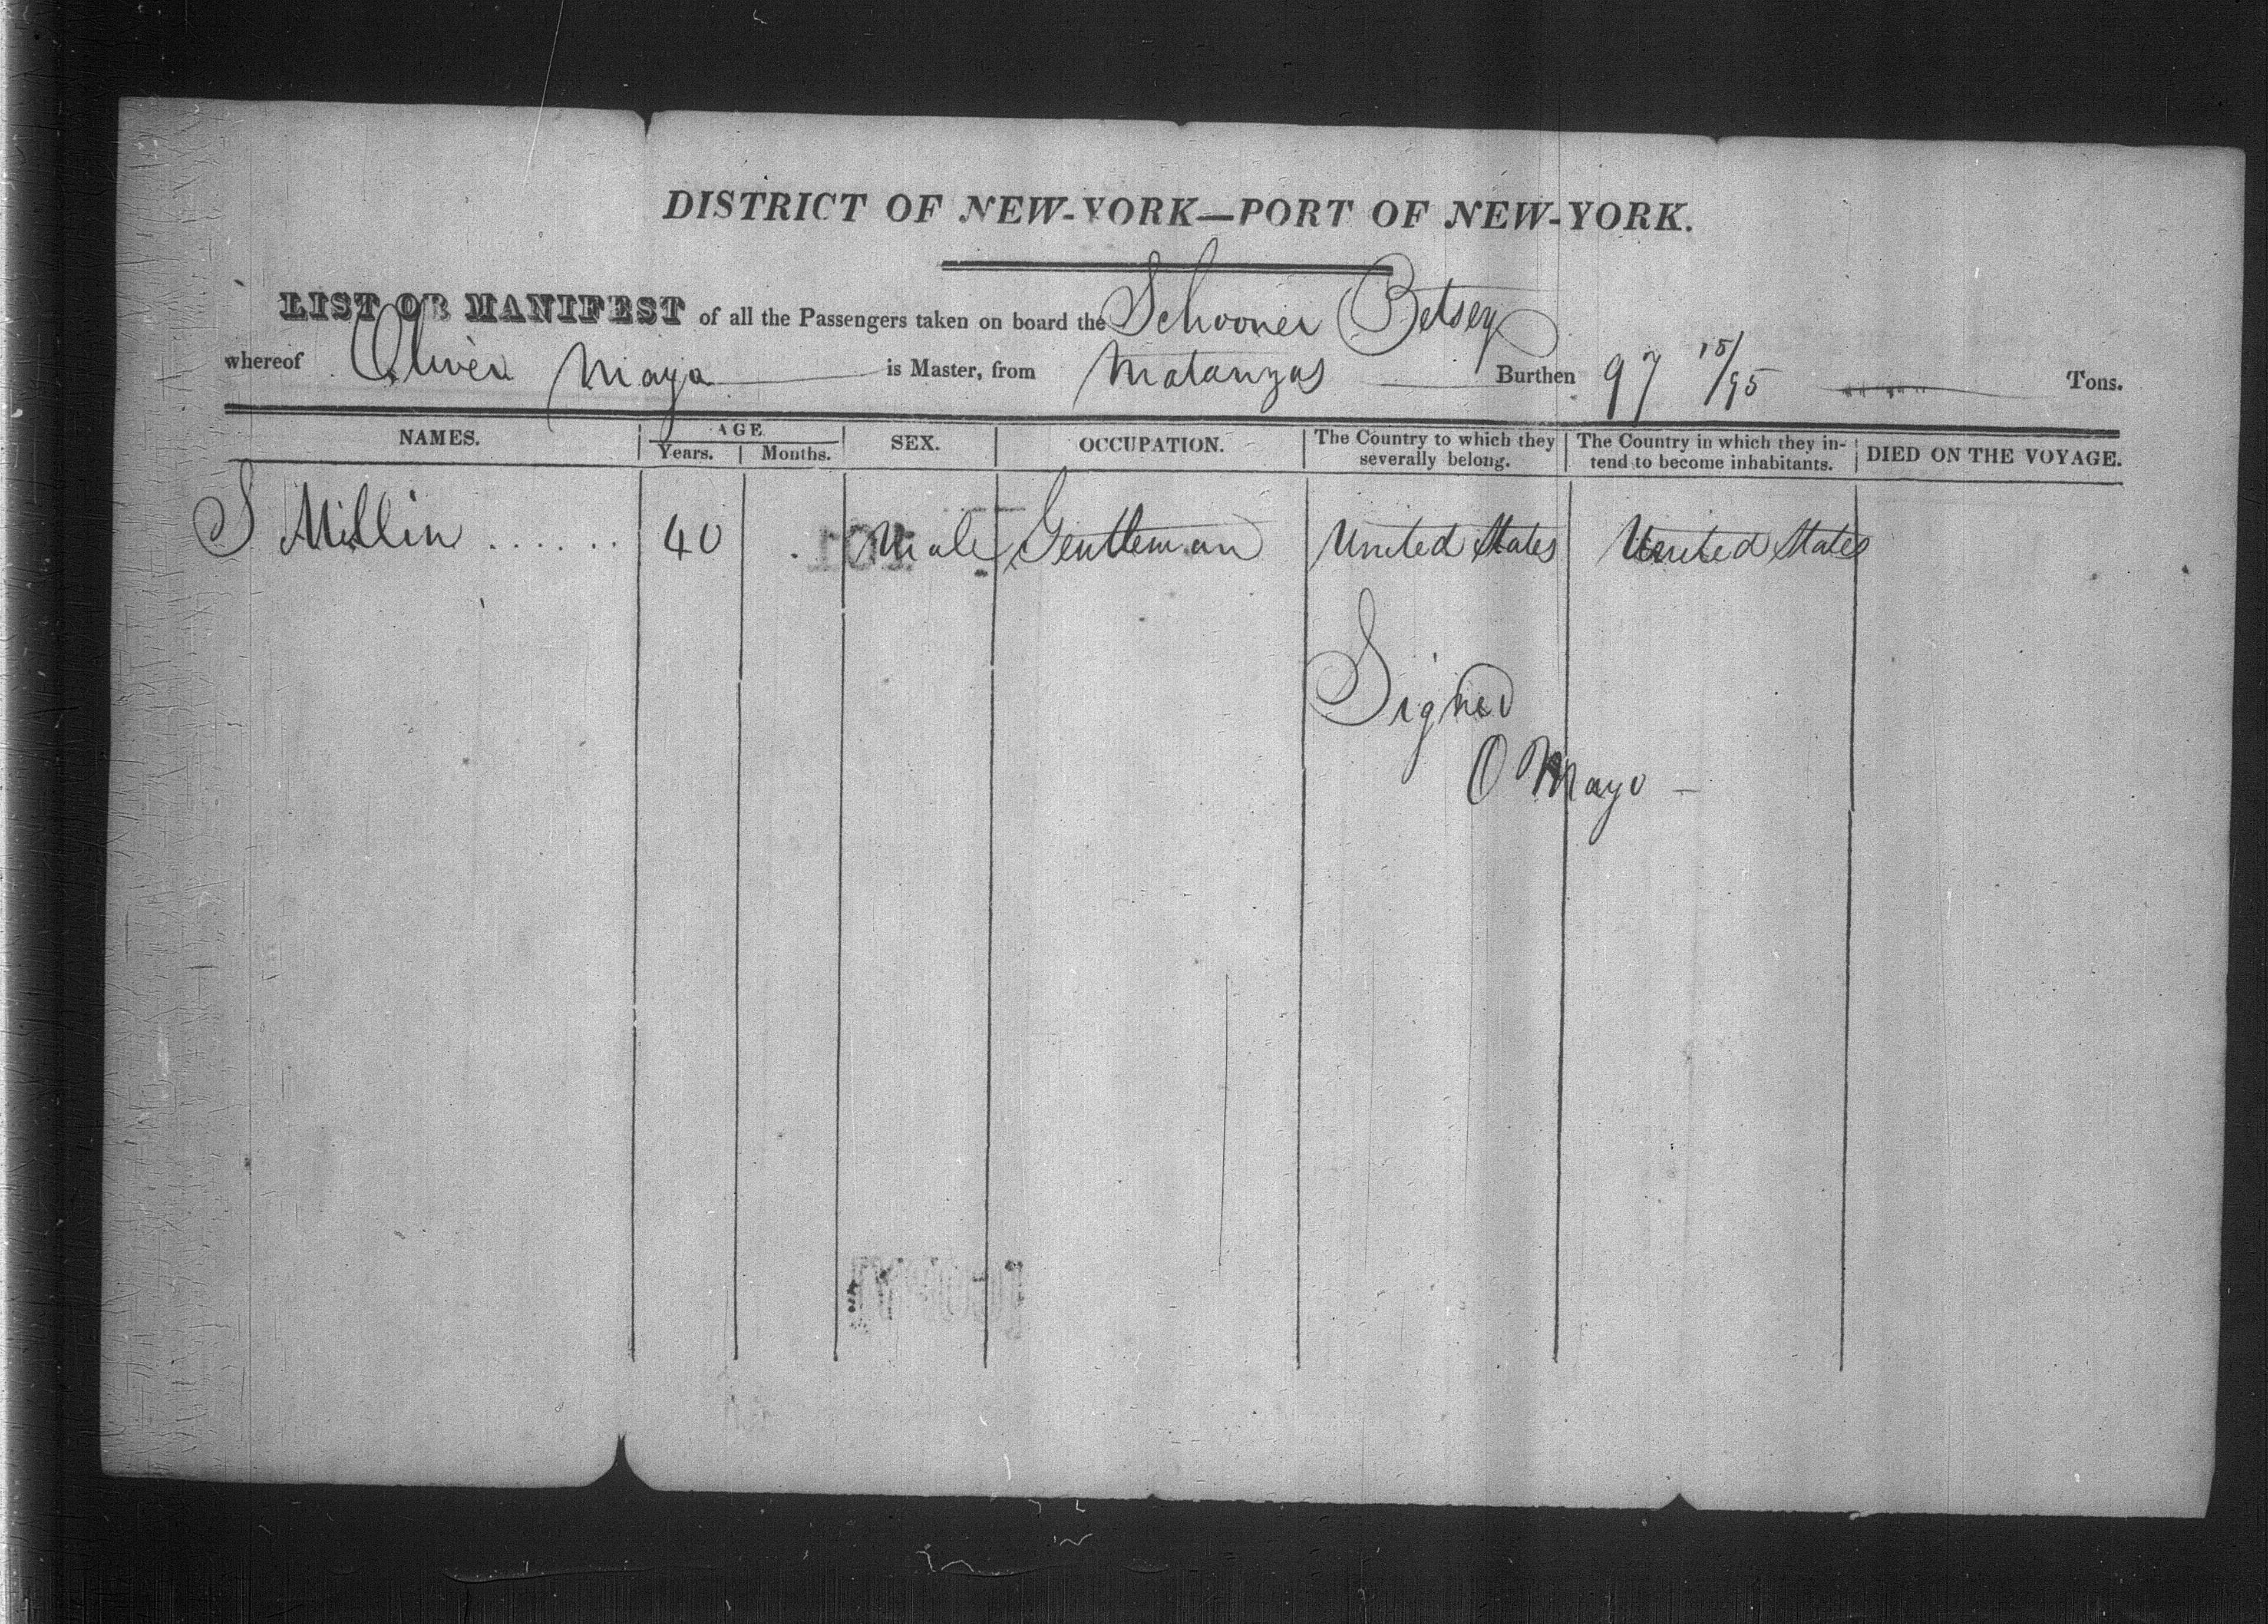 DISTRICT OF NEW-YORK—PORT OF NEW-YORK.
LIST OR MANIFEST of all the Passengers taken on board the Schooner Betsey
whereof Oliver Mayo is Master, from Matanzas Burthen 97 15/95 Tons.
NAMES. AGE Years. Months. SEX. OCCUPATION. The Country to which they severally belong. The Country in which they intend to become inhabitants. DIED ON THE VOYAGE.
S Millin ...... 40 Male Gentleman United States United States
Signed
O Mayo –